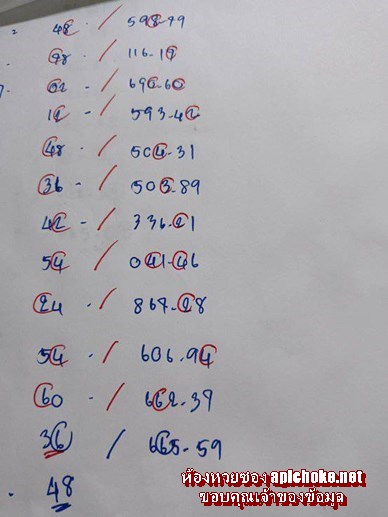 48 - / 598-79
98 - / 116-19
02 - / 690-60
12 - / 593-42
48 - / 504-31
36 - / 503-89
42 - / 336-21
54 - / 041-46
24 - / 867-28
54 - / 606-94
60 - / 662-39
36 / 665-59
48
ห้องหวยซอง apichoke.net
ขอบคุณเจ้าของข้อมูล